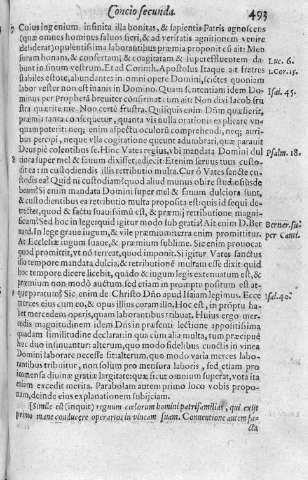 Concio secunda. 493
Cuius ingenium infinita illa bonitas, & sapientia Patris agnoscens
(quæ omnes homines saluos fieri, & ad veritatis agnitionem venire
desiderat) opulentissima laborantibus præmia proponit
suram bonam, & confertam, & coagitatam & supereffluentem da- Luc. 6.
bunt in sinum vestrum. Et ad Corinth. Apostolus Itaque ait fratres 1. Cor. 15.
stabiles estote, abundantes in omni opere Domini, scientes quoniam
labor vester non est inanis in Domino. Quam sententiam idem Do-
minus per Prophetã breuiter confirmat: cum ait Non dixi Iacob fru- Isai. 45.
stra quærite me. Non certè frustra. Quisquis enim
præmia tanta consequetur, quanta vis nulla orationis explicare vn-
quam poterit: neq; enim aspectu oculorũ comprehendi, neq; auri-
bus percipi, neque vlla cogitatione queunt adumbrari, quæ parauit
Deus piè colentibus se. Hinc Vates regius, vbi mandata Domini dul Psalm. 18.
ciora super mel & fauum dixisset, adiecit: Etenim seruus tuus custo-
dit ea: in custodiendis illis retributio multa. Cur ô Vates sancte cu-
stodis ea? Quid ni custodiam? quod aliud munus obire studiosius de
beam? Si enim mandata Domini super mel & fauum dulciora sunt,
& custodientibus ea retributio multa proposita est: quis id sequi de-
trectet, quod & factu suauissimũ est, & præmij retributione magni-
ficum? Sed hoc in lege: quid igitur modo sub gratia? Ait enim D. Ber Bernar. su-
nard. In lege graue iugum, & vile præmium: terra enim promittitur: per Cant.
At Ecclesiæ iugum suaue, & præmium sublime. Sic enim prouocat
quod promittit, vt nõ terreat, quod imponit. Si igitur Vates sanctus
illo tempore mandata dulcia, & retributionẽ multam esse dixit: quid
hoc tempore dicere licebit, quãdo & iugum legis extenuatum est, &
præmium non modò auctum, sed etiam in promptu positum est at-
que paratum? Sic enim de Christo Dño apud Isaiam legimus. Ecce Isai. 40.
merces eius cum eo, & opus illius coram illo. Hoc est, in prõptu ha-
bet mercedem operis, quam laborantibus tribuat. Huius ergo mer-
cedis magnitudinem idem Dñs in præsenti lectione appositissima
quadam similitudine declarat: in qua cùm alia multa, tum præcipuè
hæc duo insinuantur: alterum, quo modo fidelibus cunctis in vinea
Domini laborare necesse sit: alterum, quo modo varia merces labo-
rantibus tribuitur, non solùm pro mensura laboris, sed etiam pro
immensa diuinæ gratiæ largitate: quæ sicut omnium superat, vota ita
etiam excedit merita. Parabolam autem primo loco vobis propo-
nam, deinde eius explanationem subijciam.
[Simile est (inquit) regnum cælorum homini patrifamilias, qui exijt
primo mane conducere operarios in vineam suam. Conuentione autem fa-
cta